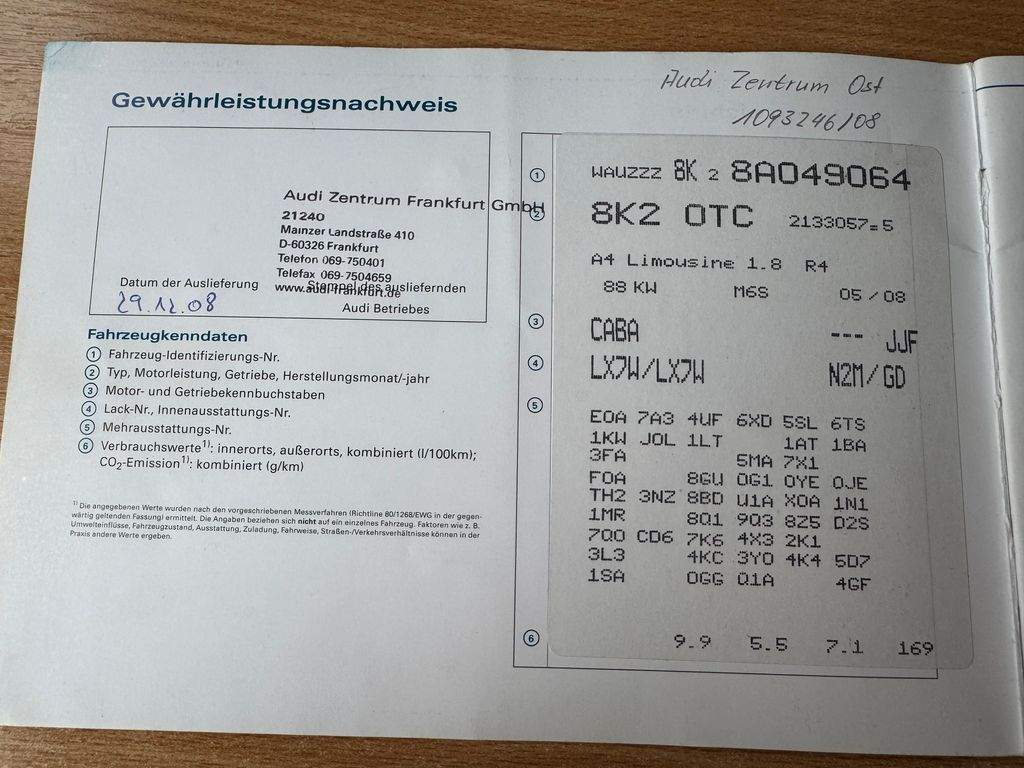 Audi Zentrum Ost
1093246/08
Gewährleistungsnachweis
Audi Zentrum Frankfurt GmbH
21240
Mainzer Landstraße 410
D-60326 Frankfurt
Telefon 069-750401
Telefax 069-7504659
www.audi-frankfurt.de
Datum der Auslieferung
Stempel des ausliefernden
Audi Betriebes
29.12.08
Fahrzeugkenndaten
1 Fahrzeug-Identifizierungs-Nr.
2 Typ, Motorleistung, Getriebe, Herstellungsmonat/-jahr
3 Motor- und Getriebekennbuchstaben
4 Lack-Nr., Innenausstattungs-Nr.
5 Mehrausstattungs-Nr.
6 Verbrauchswerte¹⁾: innerorts, außerorts, kombiniert (l/100km);
CO₂-Emission¹⁾: kombiniert (g/km)
¹⁾ Die angegebenen Werte wurden nach den vorgeschriebenen Messverfahren (Richtline 80/1268/EWG in der gegen-
wärtig geltenden Fassung) ermittelt. Die Angaben beziehen sich nicht auf ein einzelnes Fahrzeug. Faktoren wie z. B.
Umwelteinflüsse, Fahrzeugzustand, Ausstattung, Zuladung, Fahrweise, Straßen-/Verkehrsverhältnisse können in der
Praxis andere Werte ergeben.
1 WAUZZZ 8K 2 8A049064
2 8K2 0TC 2133057=5
A4 Limousine 1.8 R4
88 KW M6S 05/08
3 CABA --- JJF
4 LX7W/LX7W N2M/GD
5 E0A 7A3 4UF 6XD 5SL 6TS
1KW J0L 1LT 1AT 1BA
3FA 5MA 7X1
F0A 8GU 0G1 0YE 0JE
TH2 3NZ 8BD U1A X0A 1N1
1MR 8Q1 9Q3 8Z5 D2S
7Q0 CD6 7K6 4X3 2K1
3L3 4KC 3Y0 4K4 5D7
1SA 0GG Q1A 4GF
6 9.9 5.5 7.1 169